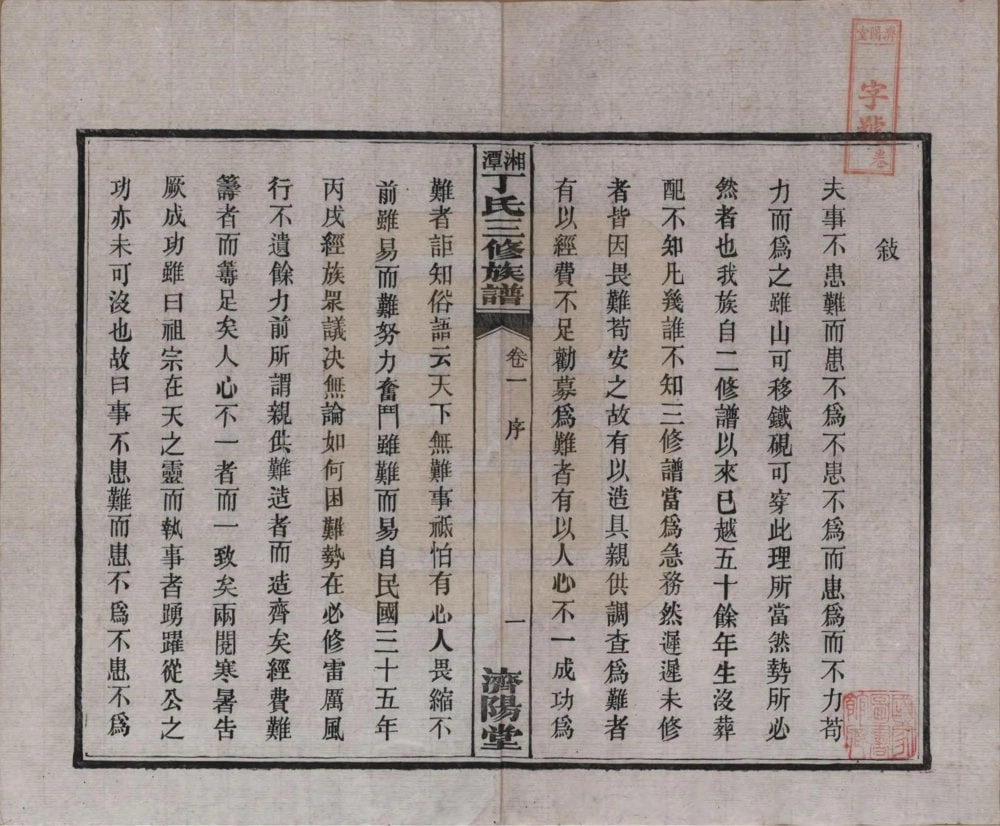 敍
夫事不患難而患不爲不患不爲而患爲而不力苟
力而爲之雖山可移鐵硯可穿此理所當然勢所必
然者也我族自二修譜以來已越五十餘年生沒葬
配不知凡幾誰不知三修譜當爲急務然遲遲未修
者皆因畏難苟安之故有以造具親供調查爲難者
有以經費不足勸募爲難者有以人心不一成功爲
湘潭丁氏三修族譜
卷一 序
一
濟陽堂
難者詎知俗語云天下無難事祇怕有心人畏縮不
前雖易而難努力奮鬥雖難而易自民國三十五年
丙戌經族眾議決無論如何困難勢在必修雷厲風
行不遺餘力前所謂親供難造者而造齊矣經費難
籌者而籌足矣人心不一者而一致矣兩閱寒暑告
厥成功雖曰祖宗在天之靈而執事者踴躍從公之
功亦未可沒也故曰事不患難而患不爲不患不爲
濟陽堂
字號
卷